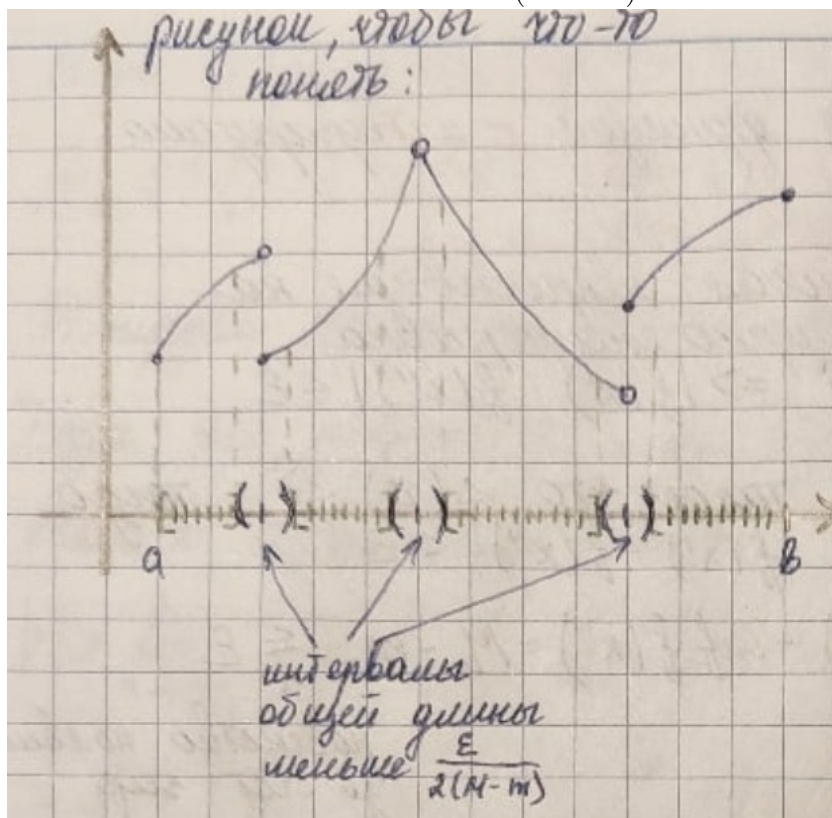 рисунок, чтобы что-то
понять:
a
b
интервалы
общей длины
меньше ε/2(M-m)